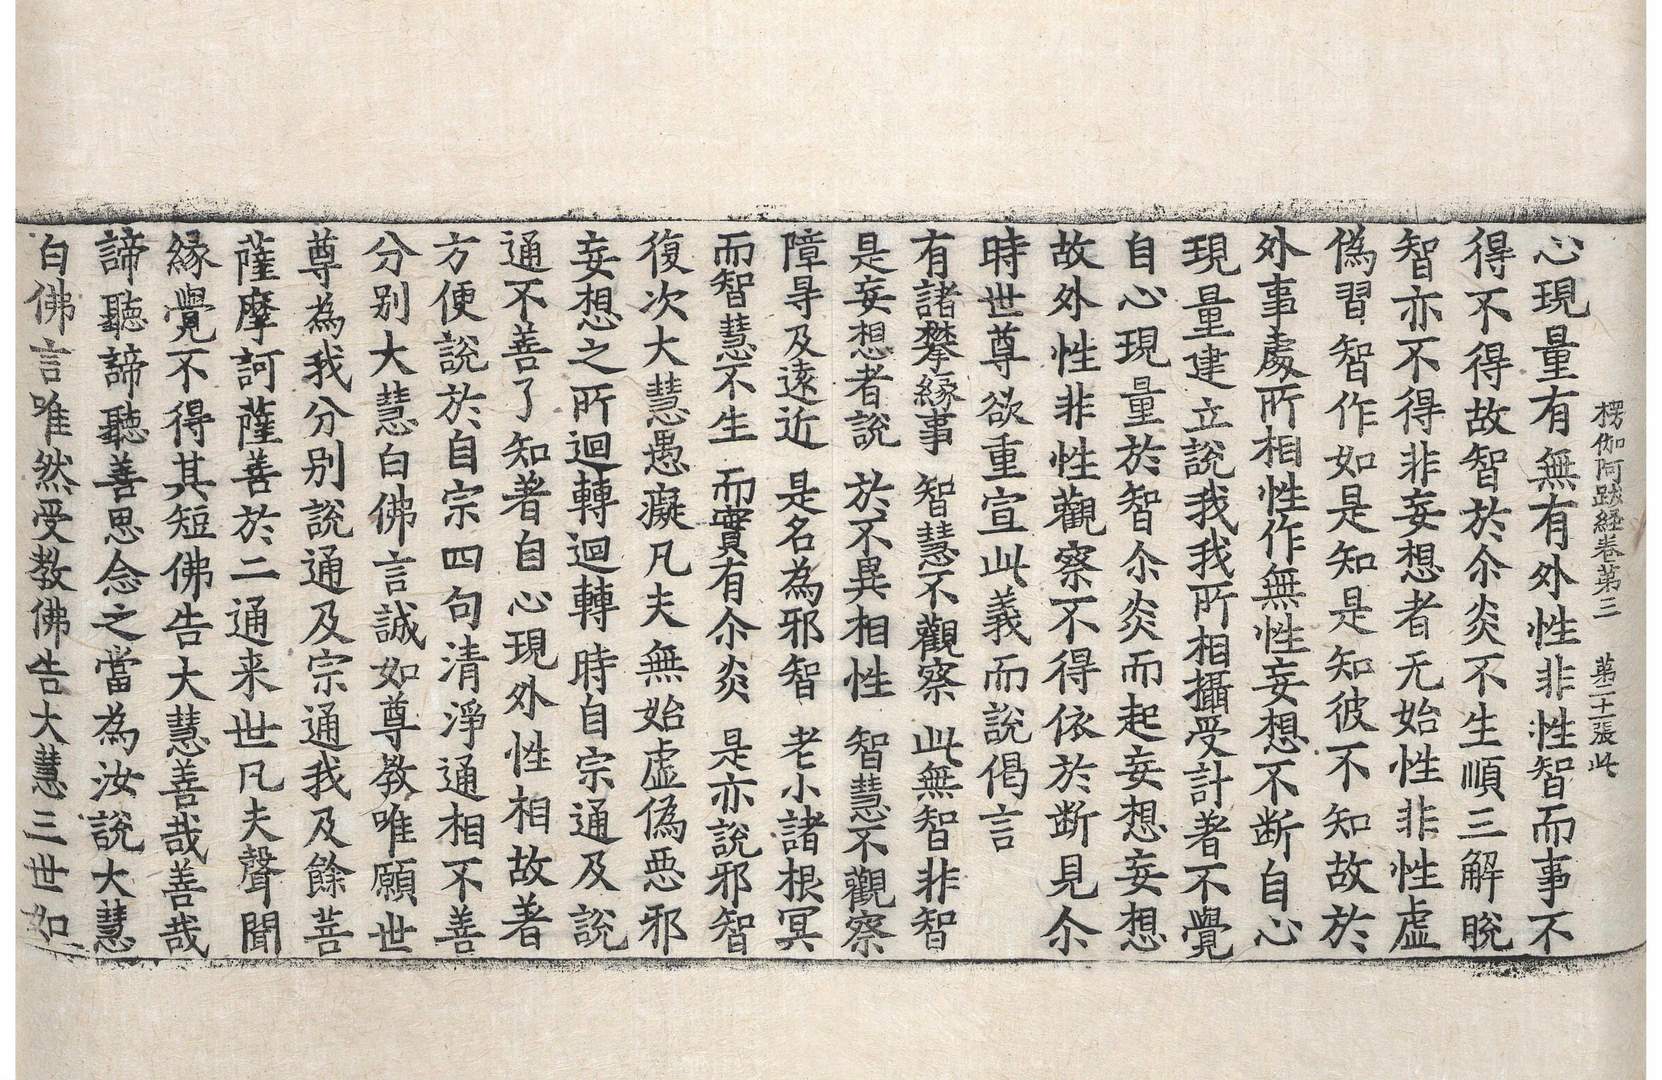 楞伽阿跋経卷第三 第二十張此
心現量有無有外性非性智而事不
得不得故智於尒炎不生順三解脫
智亦不得非妄想者无始性非性虛
偽習智作如是知是知彼不知故於
外事處所相性作無性妄想不断自心
現量建立說我我所相攝受計著不覺
自心現量於智尒炎而起妄想妄想
故外性非性觀察不得依於断見尒
時世尊欲重宣此義而說偈言
有諸攀緣事 智慧不觀察 此無智非智
是妄想者說 於不異相性 智慧不觀察
障㝵及遠近 是名為邪智 老小諸根冥
而智慧不生 而實有尒炎 是亦說邪智
復次大慧愚癡凡夫無始虛偽惡邪
妄想之所迴轉迴轉時自宗通及說
通不善了知著自心現外性相故著
方便說於自宗四句清淨通相不善
分别大慧白佛言誠如尊教唯願世
尊為我分别說通及宗通我及餘菩
薩摩訶薩善於二通来世凡夫聲聞
緣覺不得其短佛告大慧善哉善哉
諦聽諦聽善思念之當為汝說大慧
白佛言唯然受教佛告大慧三世如